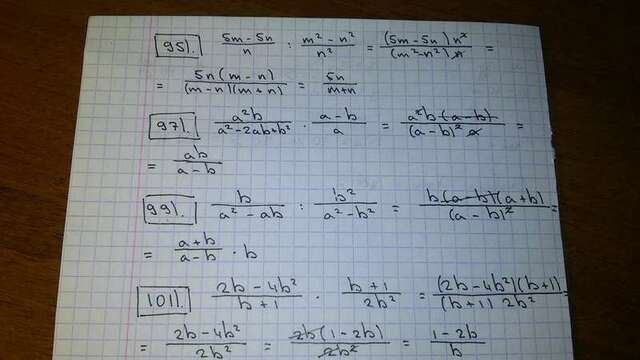 951. (5m - 5n)/n : (m² - n²)/n² = ((5m - 5n) n²)/((m² - n²) n) =
= (5n (m - n))/((m - n)(m + n)) = 5n/(m+n)
971. a²b/(a² - 2ab + b²) · (a - b)/a = (a²b (a - b))/((a - b)² a) =
= ab/(a - b)
991. b/(a² - ab) : b²/(a² - b²) = (b (a - b)(a + b))/(a - b)² =
= (a + b)/(a - b) · b
1011. (2b - 4b²)/(b + 1) · (b + 1)/2b² = ((2b - 4b²)(b + 1))/((b + 1) 2b²) =
= (2b - 4b²)/2b² = (2b (1 - 2b))/2b² = (1 - 2b)/b